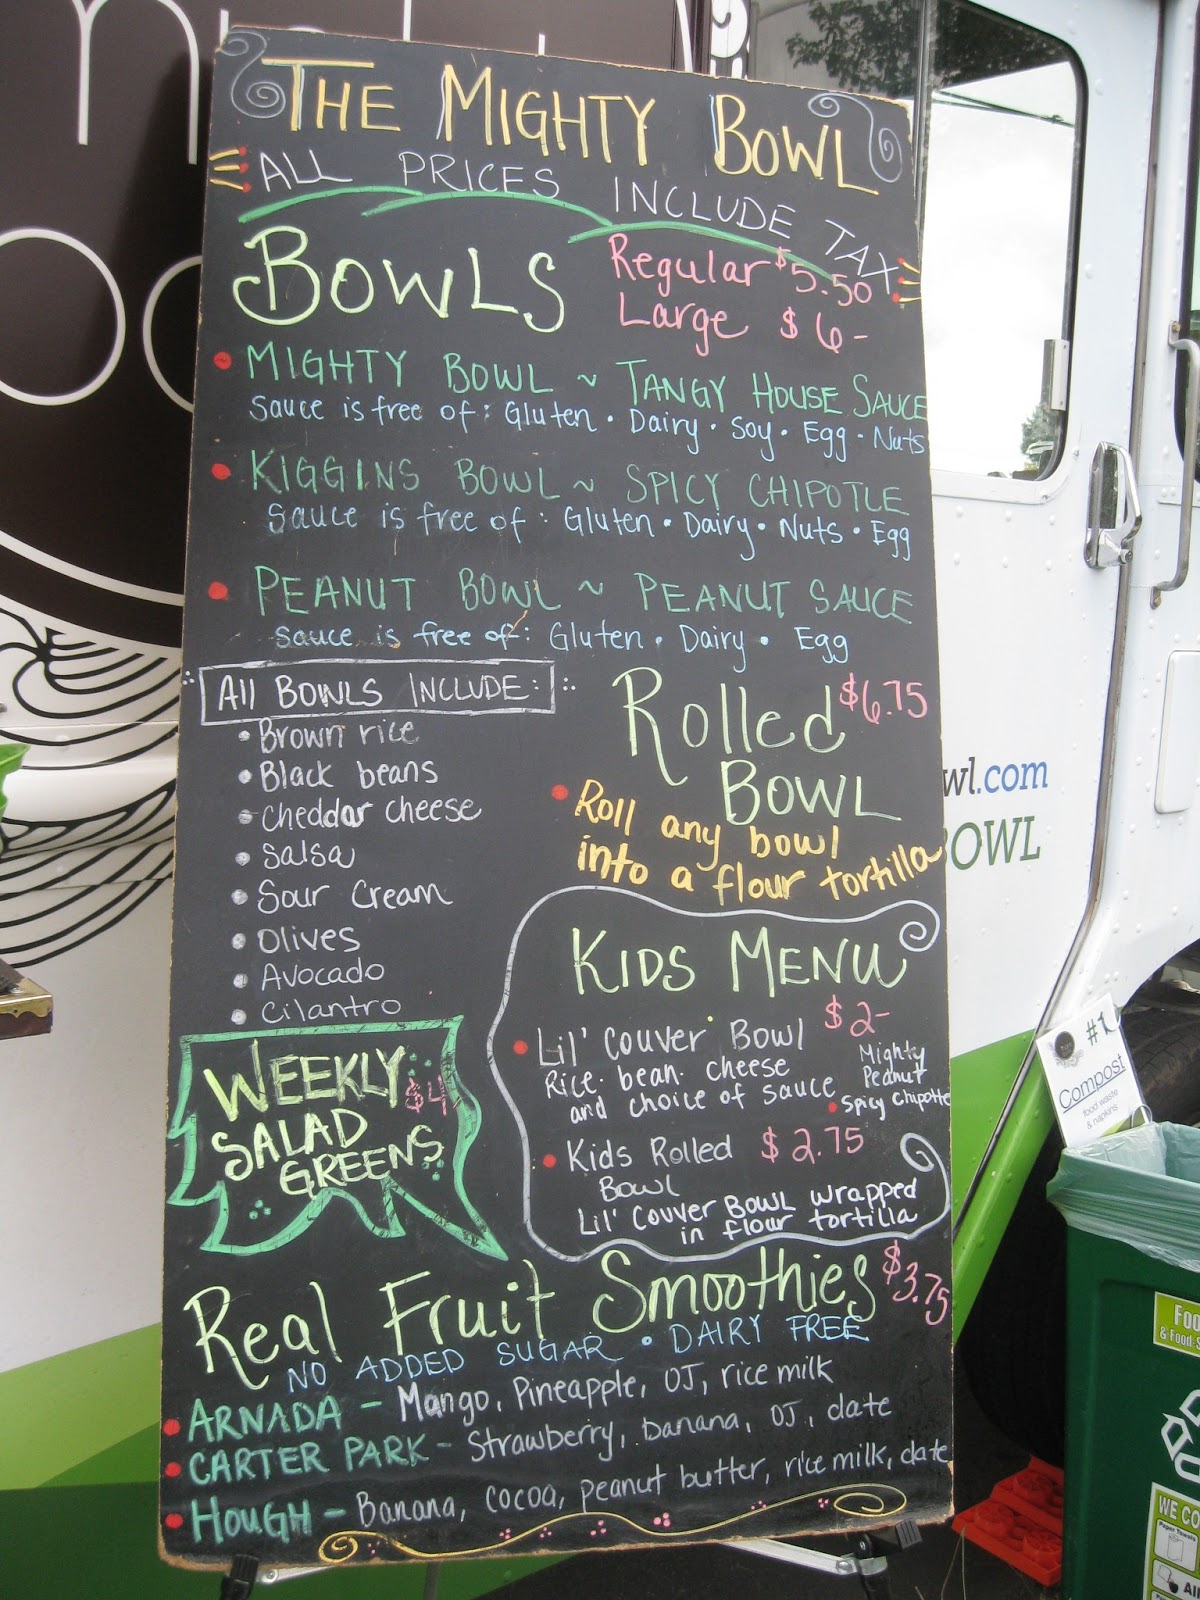 THE MIGHTY BOWL
ALL PRICES INCLUDE TAX
BOWLS
Regular $5.50
Large $6-
MIGHTY BOWL ~ TANGY HOUSE SAUCE
Sauce is free of: Gluten · Dairy · Soy · Egg · Nuts
KIGGINS BOWL ~ SPICY CHIPOTLE
Sauce is free of: Gluten · Dairy · Nuts · Egg
PEANUT BOWL ~ PEANUT SAUCE
Sauce is free of: Gluten · Dairy · Egg
All BOWLS INCLUDE:
• Brown rice
• Black beans
• Cheddar cheese
• Salsa
• Sour Cream
• Olives
• Avocado
• Cilantro
Rolled $6.75
BOWL
Roll any bowl
into a flour tortilla
KIDS MENU
Lil' Couver Bowl $2-
Rice. bean. cheese
and choice of sauce
Mighty
Peanut
Spicy Chipotle
Kids Rolled $2.75
Bowl
Lil' Couver BOWL wrapped
in flour tortilla
WEEKLY $4
SALAD
GREENS
Real Fruit Smoothies $3.75
NO ADDED SUGAR · DAIRY FREE
ARNADA - Mango, Pineapple, OJ, rice milk
CARTER PARK - Strawberry, banana, OJ, date
HOUGH - Banana, cocoa, peanut butter, rice milk, date
wl.com
BOWL
#1
Compost
food waste
& napkins
Foo
& Food-S
WE CO
Paper Towels
All